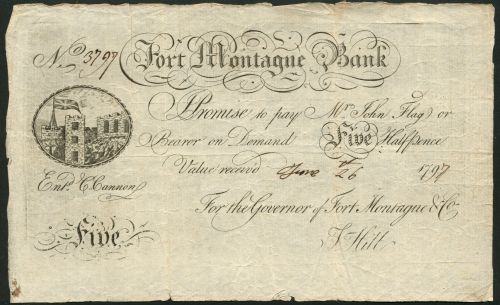 No. 3797 Fort Montague Bank
I Promise to pay Mr. John Flag or
Bearer on Demand Five Halfpence
Value receivd June 26 1797
Entd. C Cannon
For the Governor of Fort Montague & Co.
Five
Hill